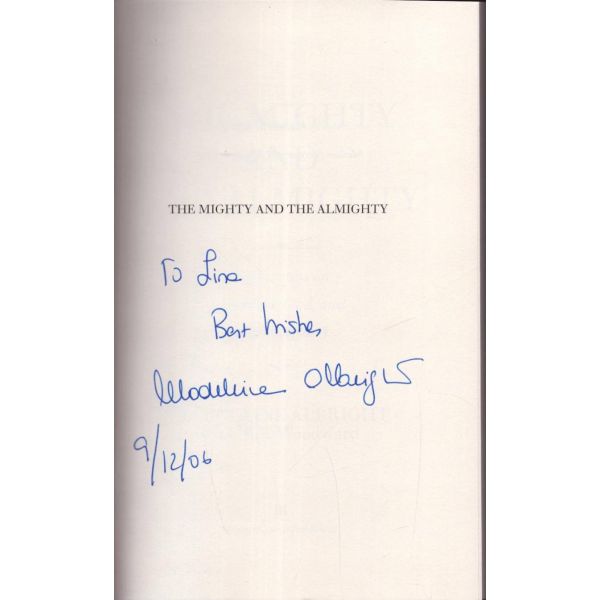 THE MIGHTY AND THE ALMIGHTY
To Lisa
Best Wishes
Madeleine Albright
9/12/06